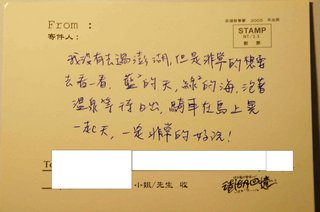 From :
寄件人：
STAMP
NT / 2.5
郵票
我沒有去過澎湖，但是非常的想要
去看一看．藍的天，綠的海，泡著
溫泉等待日出，騎車在島上晃
一整天，一定非常的好玩！
To
小姐/先生 收